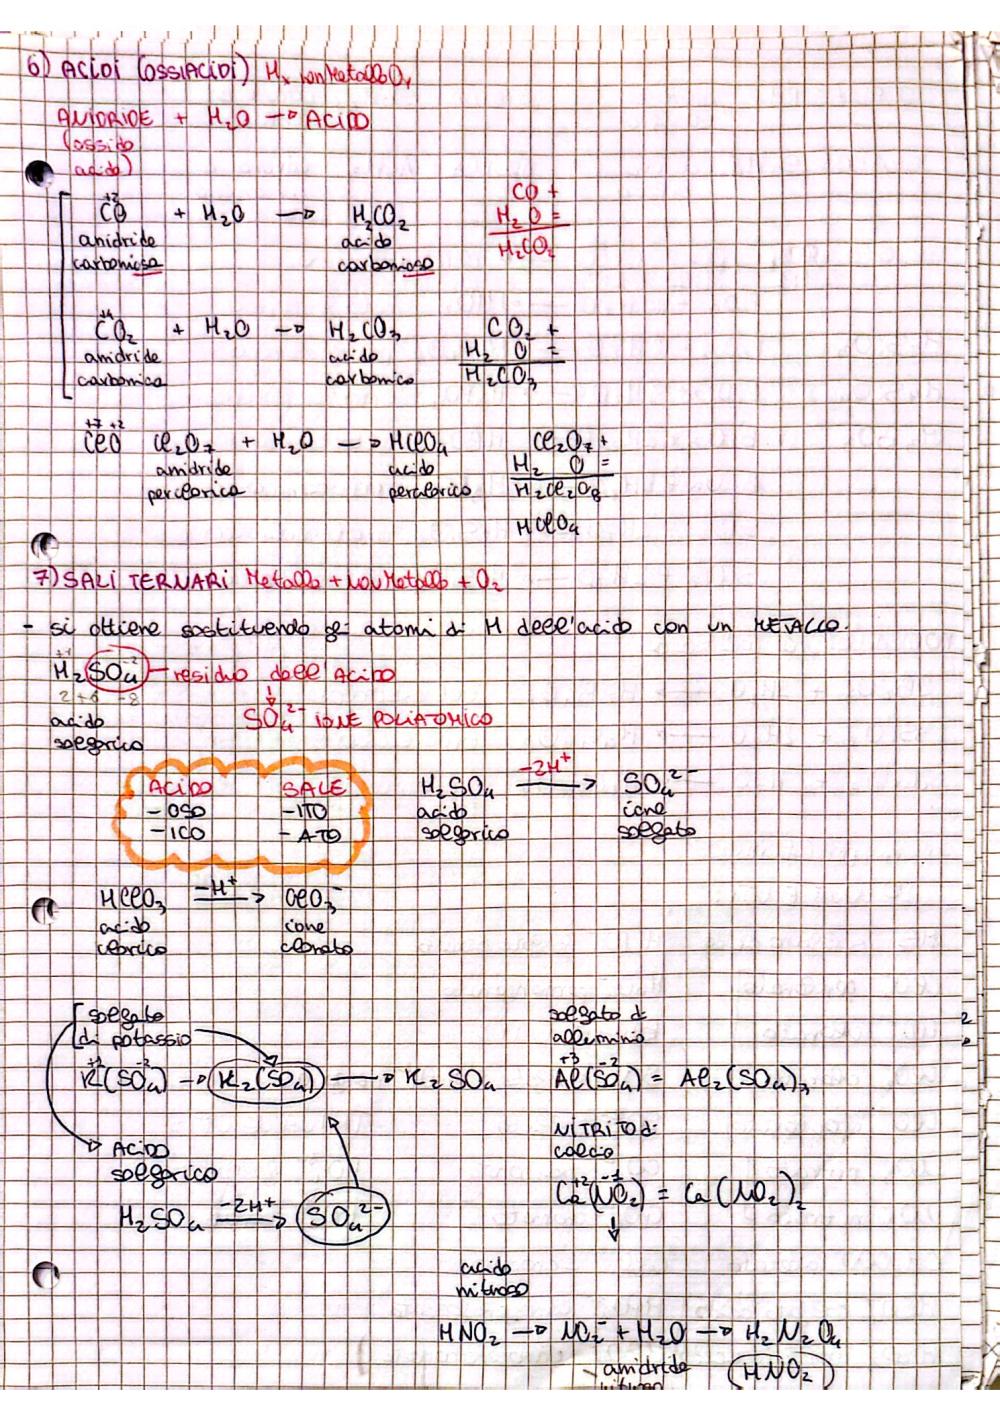 6) ACIDI (OSSIACIDI) Hx nonMetalloOy
ANIDRIDE + H2O → ACIDO
(ossido
acido)
+2
CO + H2O → H2CO2
anidride acido
carboniosa carbonioso
CO +
H2 O =
H2CO2
+4
CO2 + H2O → H2CO3
anidride acido
carbonica carbonico
CO2 +
H2 O =
H2CO3
+7 +2
ClO Cl2O7 + H2O → HClO4
anidride acido
perclorica perclorico
Cl2O7 +
H2 O =
H2Cl2O8
HClO4
7) SALI TERNARI Metallo + nonMetallo + O2
- si ottiene sostituendo gli atomi di H dell'acido con un METALLO.
+1 -2
H2SO4 - residuo dell'Acido
2+6 -8
acido
solforico
SO4 2- IONE POLIATOMICO
ACIDO SALE
-OSO -ITO
-ICO -ATO
H2SO4 -2H+ → SO4 2-
acido ione
solforico solfato
HClO3 -H+ → ClO3-
acido ione
clorico clorato
solfato
di potassio
+1 -2
K(SO4) → K2(SO4) → K2SO4
ACIDO
solforico
H2SO4 -2H+ → SO4 2-
solfato di
alluminio
+3 -2
Al(SO4) = Al2(SO4)3
NITRITO di
calcio
+2 -1
Ca(NO2) = Ca(NO2)2
acido
nitroso
HNO2 → NO2- + H2O → H2N2O4
anidride HNO2